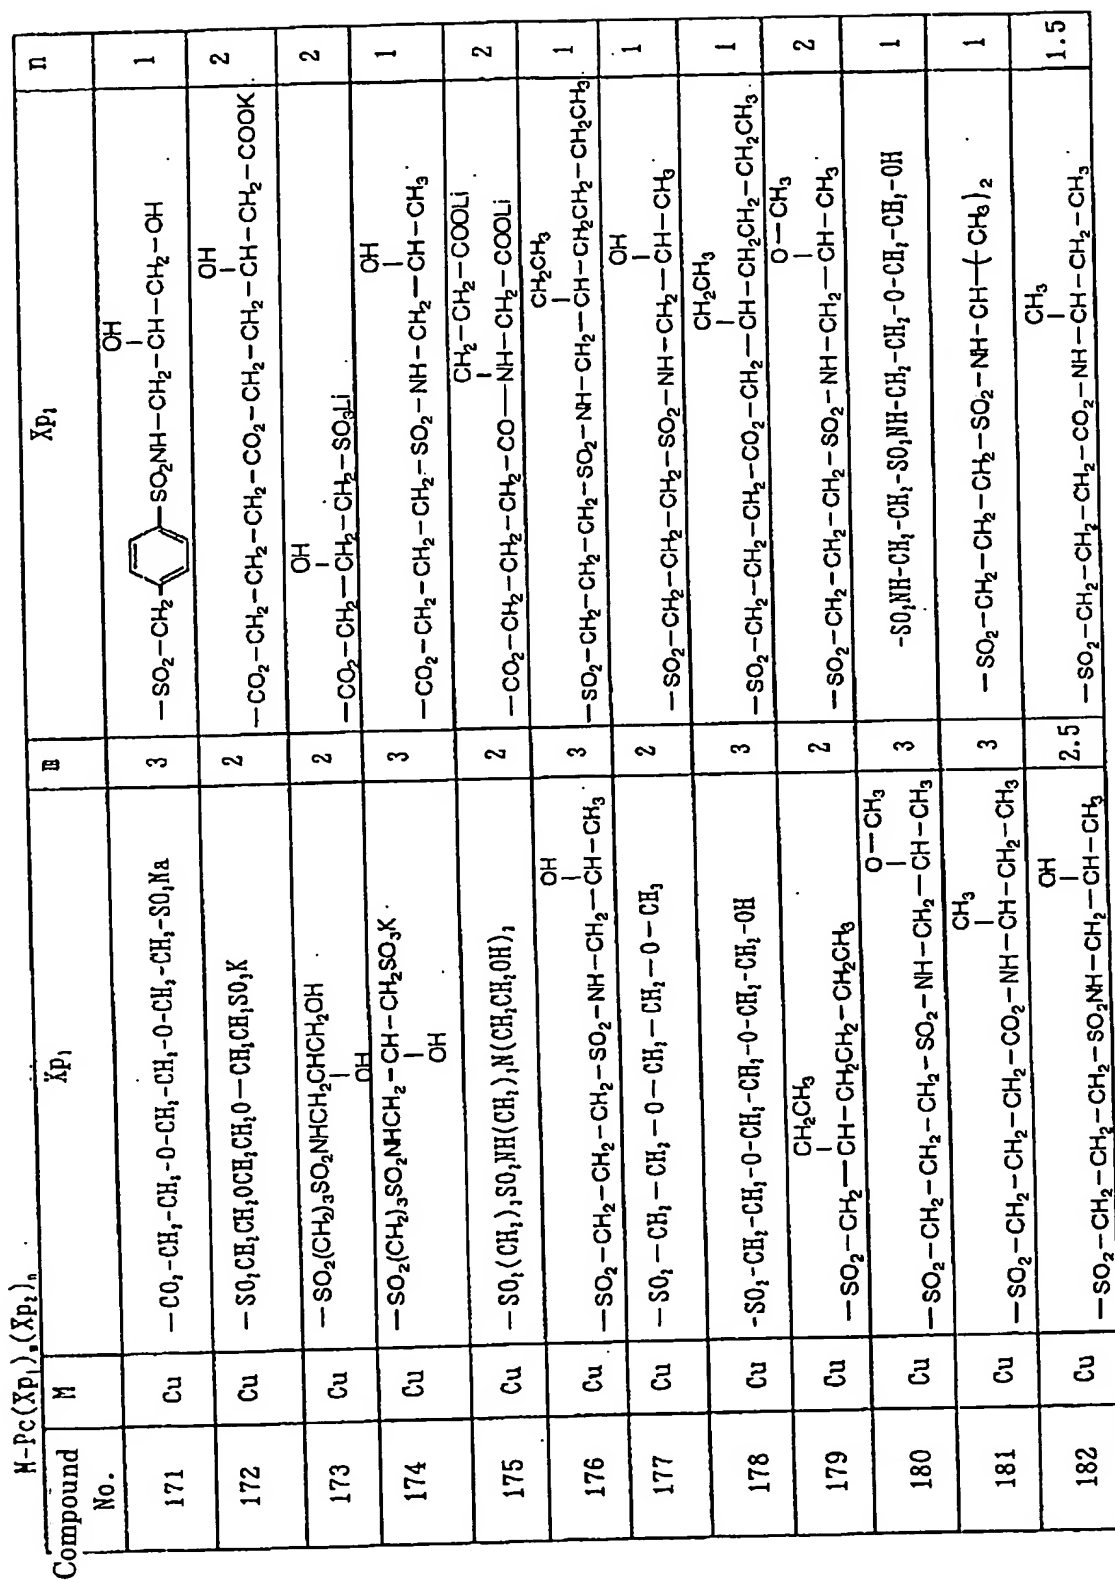 M-Pc(Xp₁)ₘ(Xp₂)ₙ
Compound No. M Xp₁ m Xp₂ n
171 Cu —CO₂-CH₂-CH₂-O-CH₂-CH₂-O-CH₂-CH₂-SO₃Na 3 OH
—SO₂–CH₂– –SO₂NH–CH₂–CH–CH₂–OH 1
172 Cu —SO₂CH₂CH₂OCH₂CH₂O—CH₂CH₂SO₃K 2 OH
—CO₂–CH₂–CH₂–CH₂–CO₂–CH₂–CH₂–CH₂–CH–CH₂–COOK 2
173 Cu —SO₂(CH₂)₃SO₂NHCH₂CHCH₂OH
OH 2 OH
—CO₂–CH₂–CH–CH₂–SO₃Li 2
174 Cu —SO₂(CH₂)₃SO₂NHCH₂–CH–CH₂SO₃K
OH 3 OH
—CO₂–CH₂–CH₂–CH₂–SO₂–NH–CH₂–CH–CH₃ 1
175 Cu —SO₂(CH₂)₃SO₂NH(CH₂)₃N(CH₂CH₂OH)₂ 2 CH₂–CH₂–COOLi
—CO₂–CH₂–CH₂–CH₂–CO–NH–CH₂–COOLi 2
176 Cu OH
—SO₂–CH₂–CH₂–CH₂–SO₂–NH–CH₂–CH–CH₃ 3 CH₂CH₃
—SO₂–CH₂–CH₂–CH₂–SO₂–NH–CH₂–CH–CH₂CH₂–CH₂CH₃ 1
177 Cu —SO₂—CH₂—CH₂—O—CH₂—CH₂—O—CH₃ 2 OH
—SO₂–CH₂–CH₂–CH₂–SO₂–NH–CH₂–CH–CH₃ 1
178 Cu -SO₂-CH₂-CH₂-O-CH₂-CH₂-O-CH₂-CH₂-OH 3 CH₂CH₃
—SO₂–CH₂–CH₂–CH₂–CO₂–CH₂–CH–CH₂CH₂–CH₂CH₃ 1
179 Cu CH₂CH₃
—SO₂–CH₂–CH–CH₂CH₂–CH₂CH₃ 2 O–CH₃
—SO₂–CH₂–CH₂–CH₂–SO₂–NH–CH₂–CH–CH₃ 2
180 Cu O–CH₃
—SO₂–CH₂–CH₂–CH₂–SO₂–NH–CH₂–CH–CH₃ 3 -SO₂NH-CH₂-CH₂-SO₂NH-CH₂-CH₂-O-CH₂-CH₂-OH 1
181 Cu CH₃
—SO₂–CH₂–CH₂–CH₂–CO₂–NH–CH–CH₂–CH₃ 3 —SO₂–CH₂–CH₂–CH₂–SO₂–NH–CH–(CH₃)₂ 1
182 Cu OH
—SO₂–CH₂–CH₂–CH₂–SO₂NH–CH₂–CH–CH₃ 2.5 CH₃
—SO₂–CH₂–CH₂–CH₂–CO₂–NH–CH–CH₂–CH₃ 1.5